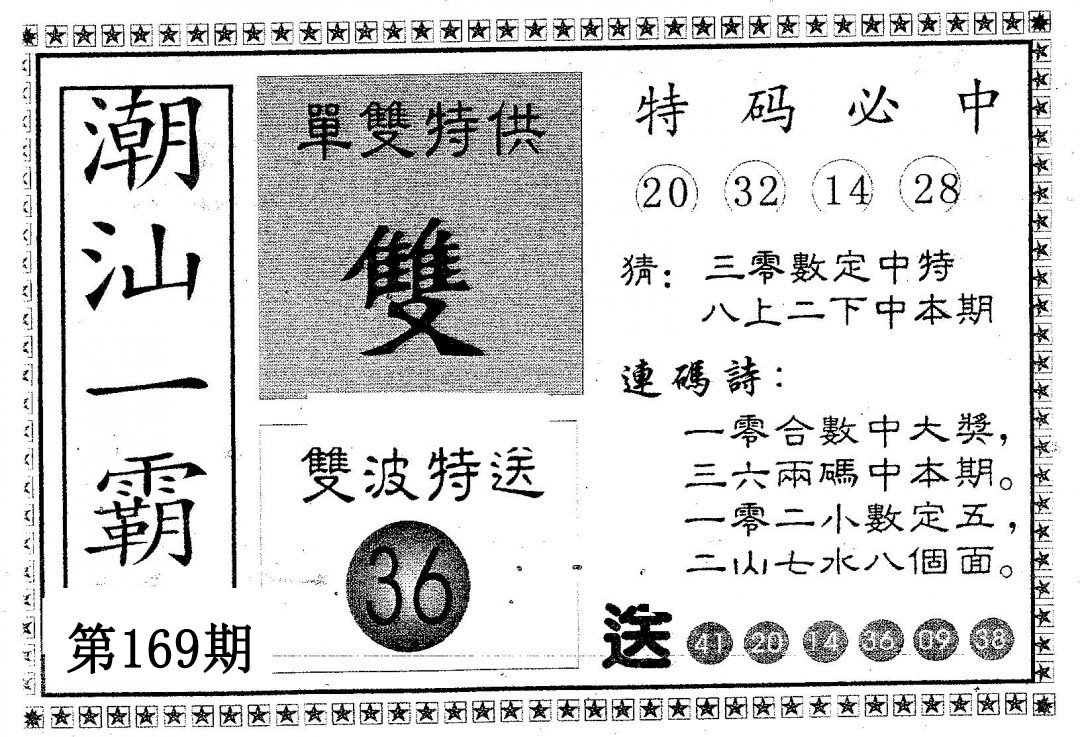 潮汕一霸
第169期
單雙特供
雙
雙波特送
36
特码必中
20 32 14 28
猜：三零數定中特
八上二下中本期
連碼詩：
一零合數中大獎，
三六兩碼中本期。
一零二小數定五，
二山七水八個面。
送 41 20 14 36 09 38